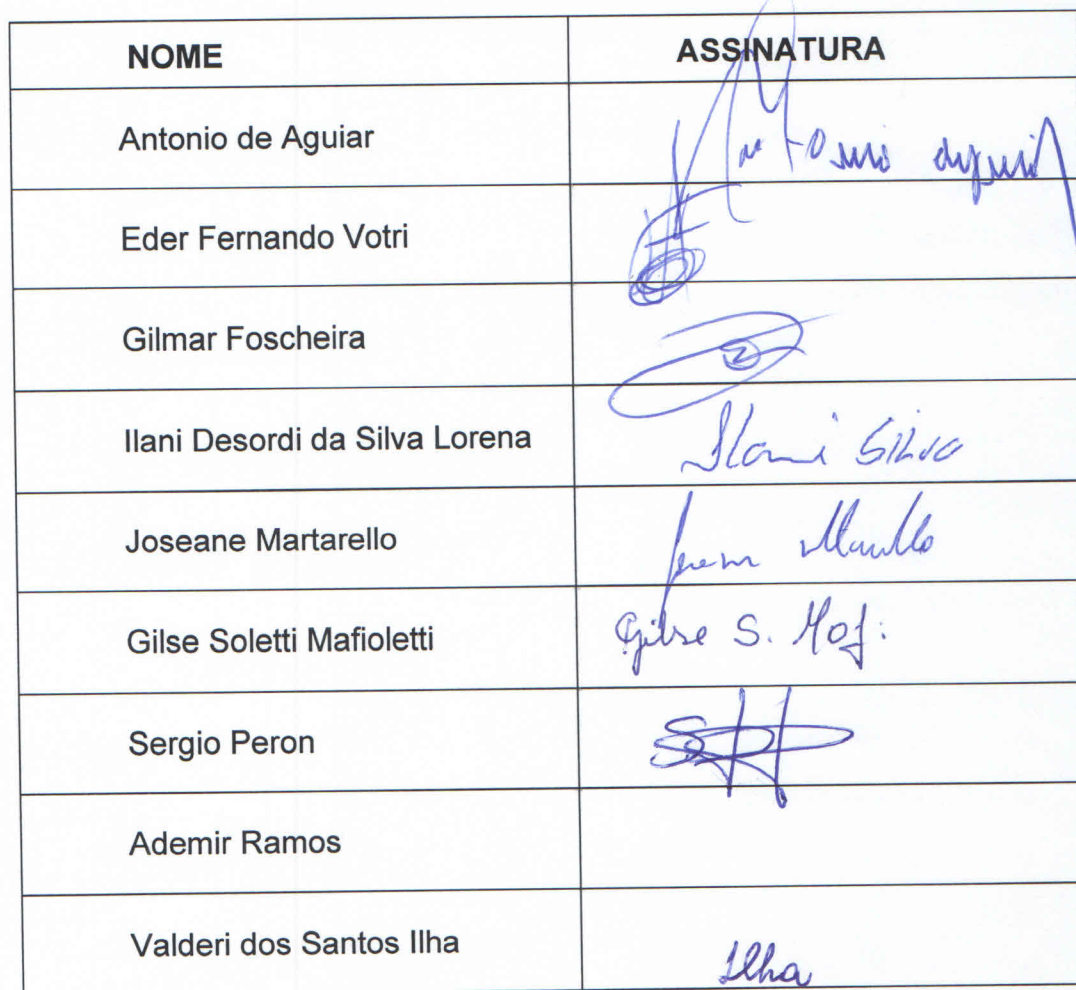 NOME ASSINATURA
Antonio de Aguiar
Eder Fernando Votri
Gilmar Foscheira
Ilani Desordi da Silva Lorena Ilani Silva
Joseane Martarello
Gilse Soletti Mafioletti Gilse S. Maf.
Sergio Peron
Ademir Ramos
Valderi dos Santos Ilha Ilha